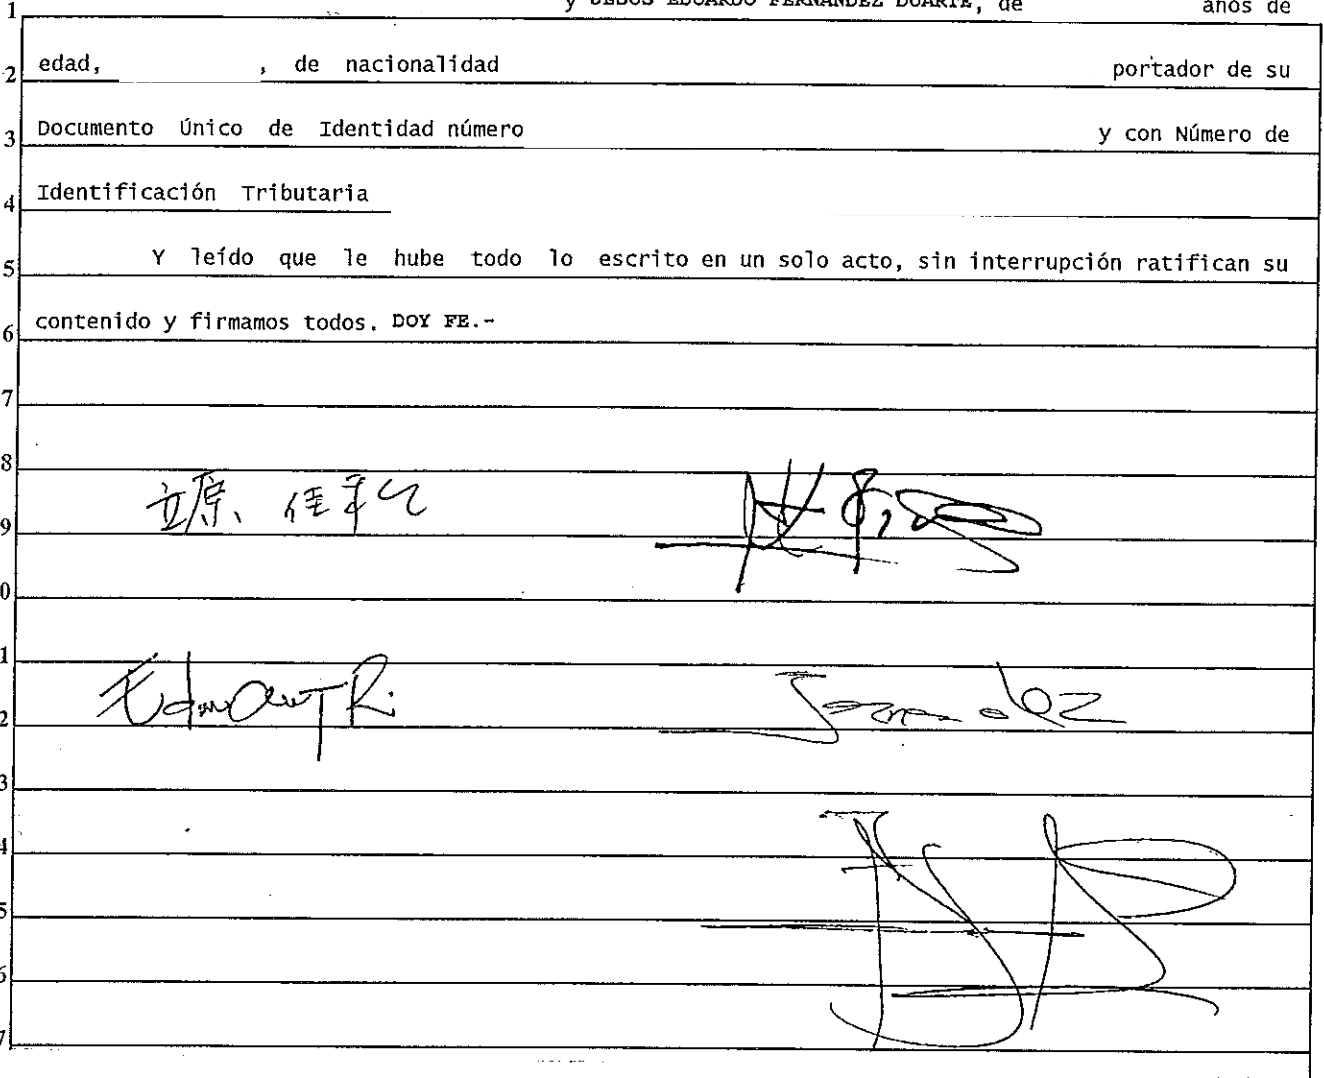 1 y JESUS EDUARDO FERNANDEZ DUARTE, de años de
2 edad, , de nacionalidad portador de su
3 Documento Único de Identidad número y con Número de
4 Identificación Tributaria
5 Y leído que le hube todo lo escrito en un solo acto, sin interrupción ratifican su
6 contenido y firmamos todos. DOY FE.-
7
8
9 立原 佳
0
1
2
3
4
5
6
7